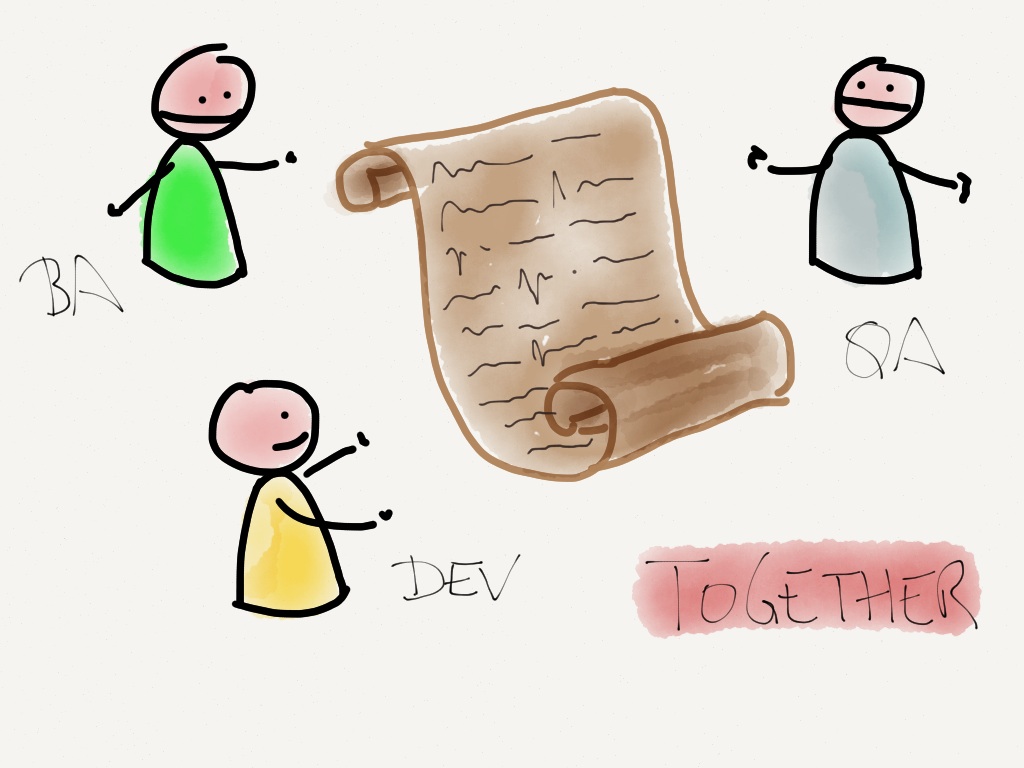 BA
QA
DEV
TOGETHER